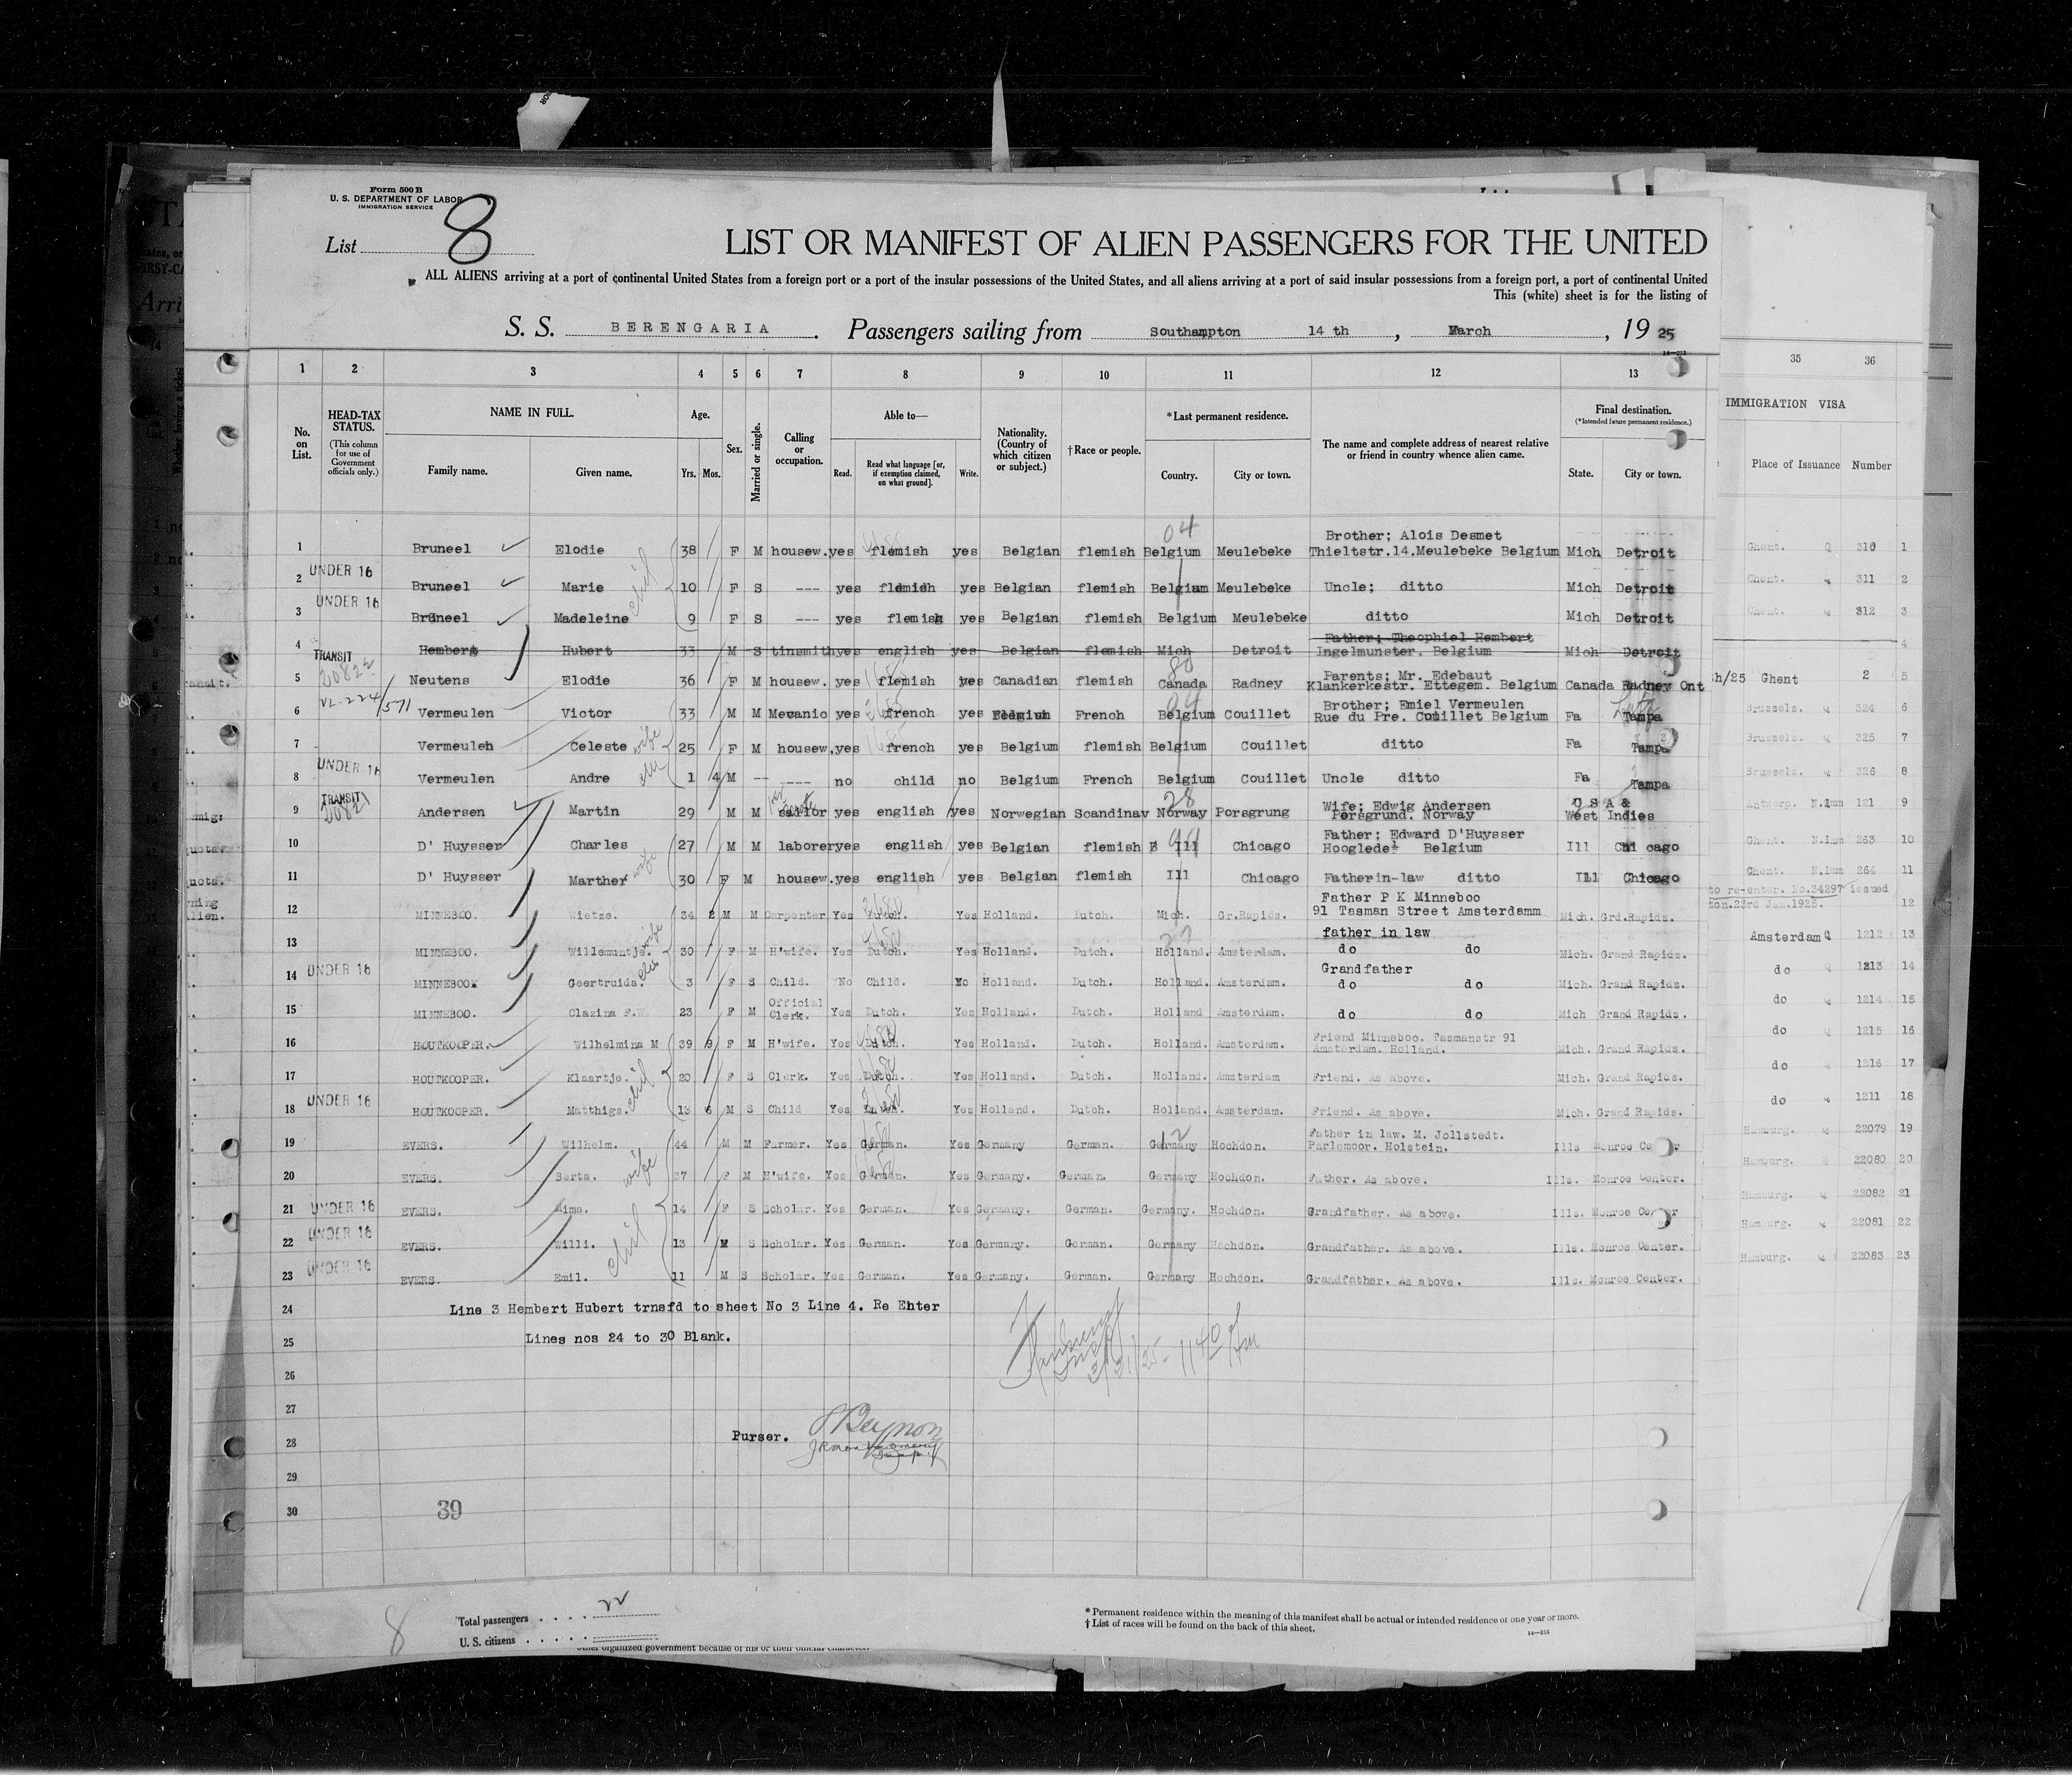 Form 500 B
U. S. DEPARTMENT OF LABOR
IMMIGRATION SERVICE
List 8
LIST OR MANIFEST OF ALIEN PASSENGERS FOR THE UNITED
ALL ALIENS arriving at a port of continental United States from a foreign port or a port of the insular possessions of the United States, and all aliens arriving at a port of said insular possessions from a foreign port, a port of continental United
This (white) sheet is for the listing of
S. S. BERENGARIA. Passengers sailing from Southampton 14 th, March, 1925
14—213
1 2 3 4 5 6 7 8 9 10 11 12 13 35 36
No. on List.
HEAD-TAX STATUS. (This column for use of Government officials only.)
NAME IN FULL. Family name. Given name.
Age. Yrs. Mos.
Sex.
Married or single.
Calling or occupation.
Able to— Read. Read what language [or, if exemption claimed, on what ground]. Write.
Nationality. (Country of which citizen or subject.)
†Race or people.
*Last permanent residence. Country. City or town.
The name and complete address of nearest relative or friend in country whence alien came.
Final destination. (*Intended future permanent residence.) State. City or town.
IMMIGRATION VISA Place of Issuance Number
04
Brother; Alois Desmet
1 Bruneel Elodie 38 F M housew. yes flemish yes Belgian flemish Belgium Meulebeke Thieltstr.14.Meulebeke Belgium Mich Detroit Ghent. Q 310 1
2 UNDER 16 Bruneel Marie 10 F S --- yes flemish yes Belgian flemish Belgium Meulebeke Uncle; ditto Mich Detroit Ghent. 311 2
3 UNDER 16 Bruneel Madeleine 9 F S --- yes flemish yes Belgian flemish Belgium Meulebeke ditto Mich Detroit Ghent. 312 3
Father; Theophiel Hembert
4 Hembert Hubert 33 M S tinsmith yes english yes Belgian flemish Mich Detroit Ingelmunster. Belgium Mich Detroit 4
Parents; Mr. Edebaut
5 TRANSIT Neutens Elodie 36 F M housew. yes flemish yes Canadian flemish Canada Radney Klankerkestr. Ettegem. Belgium Canada Radney Ont h/25 Ghent 2 5
Brother; Emiel Vermeulen
6 Vermeulen Victor 33 M M Mecanic yes french yes Belgium French Belgium Couillet Rue du Pre. Couillet Belgium Fa Tampa Brussels. 324 6
7 Vermeulen Celeste wife 25 F M housew. yes french yes Belgium flemish Belgium Couillet ditto Fa Tampa Brussels. 325 7
8 UNDER 16 Vermeulen Andre 1 4 M -- ---- no child no Belgium French Belgium Couillet Uncle ditto Fa Tampa Brussels. 326 8
Wife; Edwig Andersen U S A &
9 TRANSIT Andersen Martin 29 M M sailor yes english yes Norwegian Scandinav Norway Porsgrung Porsgrund. Norway West Indies Antwerp. N.Imm 121 9
Father; Edward D'Huysser
10 D' Huysser Charles 27 M M laborer yes english yes Belgian flemish Ill Chicago Hooglede Belgium Ill Chi cago Ghent. N.Imm 263 10
11 D' Huysser Marther wife 30 F M housew. yes english yes Belgian flemish Ill Chicago Fatherin-law ditto Ill Chicago Ghent. N.Imm 264 11
to re-enter. No.34297 issued
Father P K Minneboo
12 MINNEBOO. Wietze. 34 2 M M Carpenter Yes Dutch. Yes Holland. Dutch. Mich. Gr.Rapids. 91 Tasman Street Amsterdamm Mich. Grd.Rapids. ton.23rd Jan.1925. 12
father in law
13 MINNEBOO. Willemuntje. wife 30 F M H'wife. Yes Dutch. Yes Holland. Dutch. Holland. Amsterdam. do do Mich. Grand Rapids. Amsterdam Q 1212 13
Grandfather
14 UNDER 16 MINNEBOOX Geertruida. 3 F S Child. No Child. No Holland. Dutch. Holland. Amsterdam. do do Mich. Grand Rapids. do 1213 14
15 MINNEBOO. Clazina F.W. 23 F M Official Clerk. Yes Dutch. Yes Holland. Dutch. Holland Amsterdam. do do Mich Grand Rapids. do 1214 15
16 HOUTKOOPER. Wilhelmina M 39 9 F M H'wife. Yes Dutch. Yes Holland. Dutch. Holland. Amsterdam. Friend Minneboo. Tasmanstr 91 Amsterdam. Holland. Mich. Grand Rapids. do 1215 16
17 HOUTKOOPER. Klaartje. 20 F S Clerk. Yes Dutch. Yes Holland. Dutch. Holland. Amsterdam Friend. As above. Mich. Grand Rapids. do 1216 17
18 UNDER 16 HOUTKOOPER. Matthigs. 13 6 M S Child Yes Dutch. Yes Holland. Dutch. Holland. Amsterdam. Friend. As above. Mich. Grand Rapids. do 1211 18
19 EVERS. Wilhelm. 44 M M Farmer. Yes German. Yes Germany German. Germany Hochdon. Father in law. M. Jollstedt. Parlemoor. Holstein. Ills Monroe Hamburg. 22079 19
20 EVERS. Berta. wife 37 F M H'wife. Yes German. Yes Germany. German. Germany Hochdon. Father. As above. Ills. Monroe Center. Hamburg. 22080 20
21 UNDER 16 EVERS. Mima. 14 F S Scholar. Yes German. Yes Germany. German. Germany. Hochdon. Grandfather. As above. Ills. Monroe Hamburg. 22082 21
22 UNDER 16 EVERS. Willi. 13 M S Scholar. Yes German. Yes Germany. German. Germany Hochdon. Grandfather. As above. Ills. Monroe Center. Hamburg. 22081 22
23 UNDER 16 EVERS. Emil. 11 M S Scholar. Yes German. Yes Germany. German. Germany Hochdon. Grandfather. As above. Ills. Monroe Center. Hamburg. 22083 23
24 Line 3 Hembert Hubert trnsfd to sheet No 3 Line 4. Re Enter
25 Lines nos 24 to 30 Blank.
26
27
28 Purser.
29
30 39
Total passengers . . . . 22
U. S. citizens . . . . .
8
* Permanent residence within the meaning of this manifest shall be actual or intended residence of one year or more.
† List of races will be found on the back of this sheet.
14—213